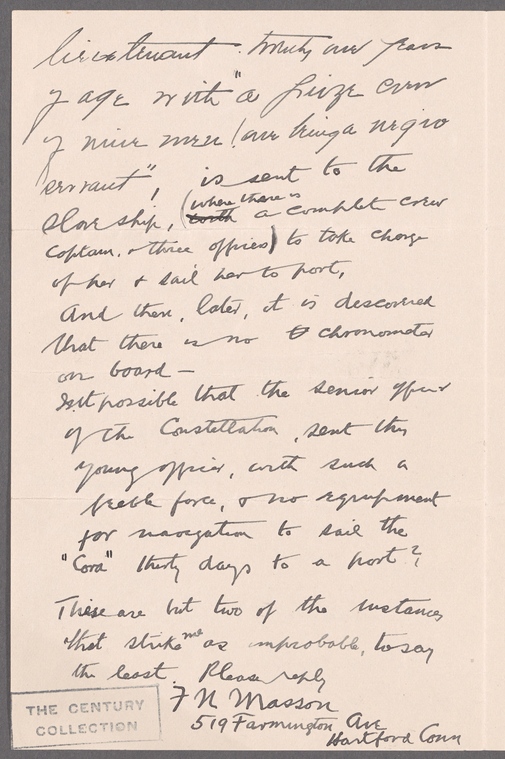 lieutenant twenty one years
of age with "a prize crew
of nine men (one being a negro
servant", is sent to the
slave ship, (where there is
a complete crew
captain, & three offices) to take charge
of her & sail her to port,
And then, later, it is discovered
that there is no chronometer
on board —
Is it possible that the senior officer
of the Constellation, sent this
young officer, with such a
feeble force, & no equipment
for navigation to sail the
"Cora" thirty days to a port?,
These are but two of the instances
that strike me as improbable, to say
the least. Please reply
F N Masson
519 Farmington Ave
Hartford Conn
THE CENTURY
COLLECTION